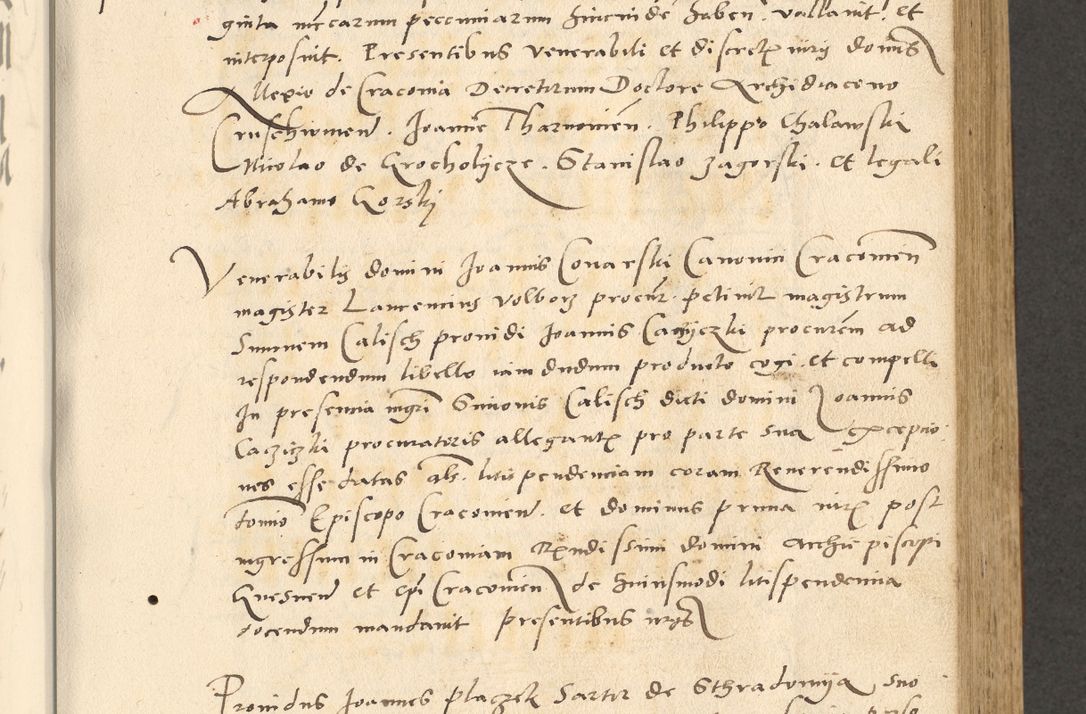 ginta mrcarum peccuniarum huiuide haben. vallauit. et
interposuit. Presentibus venerabili et discretis viris dominis
Allexio de Cracouia Decretorum Doctore Archidiacono
Cruschwicien. Joanne Tharnowien. Philippo Chalawski
Nicolao de Grocholijcze. Stanislao Zagorski. et legali
Abrahamo Gorskj
Venerabilis domini Joannis Conarski Canonici Cracouien
magister Laurencius Volborz procur. petiuit magistrum
Simonem Calisch prouidi Joannis Caczyczki procurem ad
respondendum libello iam dudum producto cogi. et compelli
In presencia mgri Simonis Calisch dicti domini Joannis
Caczyczki procuratoris allegantis pro parte sua excepcio
nes esse datas als. litis pendenciam coram Reuerendissimo
domino Episcopo Cracouien. et dominus prima iuris post
ingressum in Cracouiam Rndissimi domini Archiepiscopi
Gnesnen et Epi Cracouien de huiusmodi litispendencia
docendum mandauit presentibus
Prouidus Joannes Placzek Sartor de Sthradomija suo